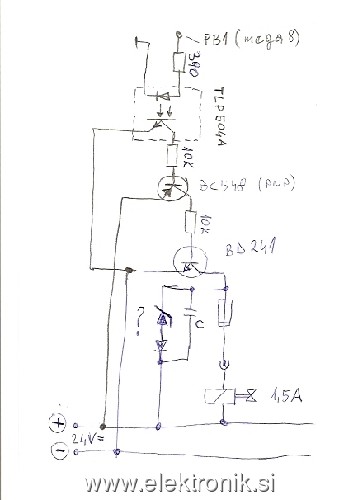 PB1 (mega8)
390
TLP504A
10k
BC548 (PNP)
10k
BD241
?
C
1,5A
+
24V=
-
www.elektronik.si